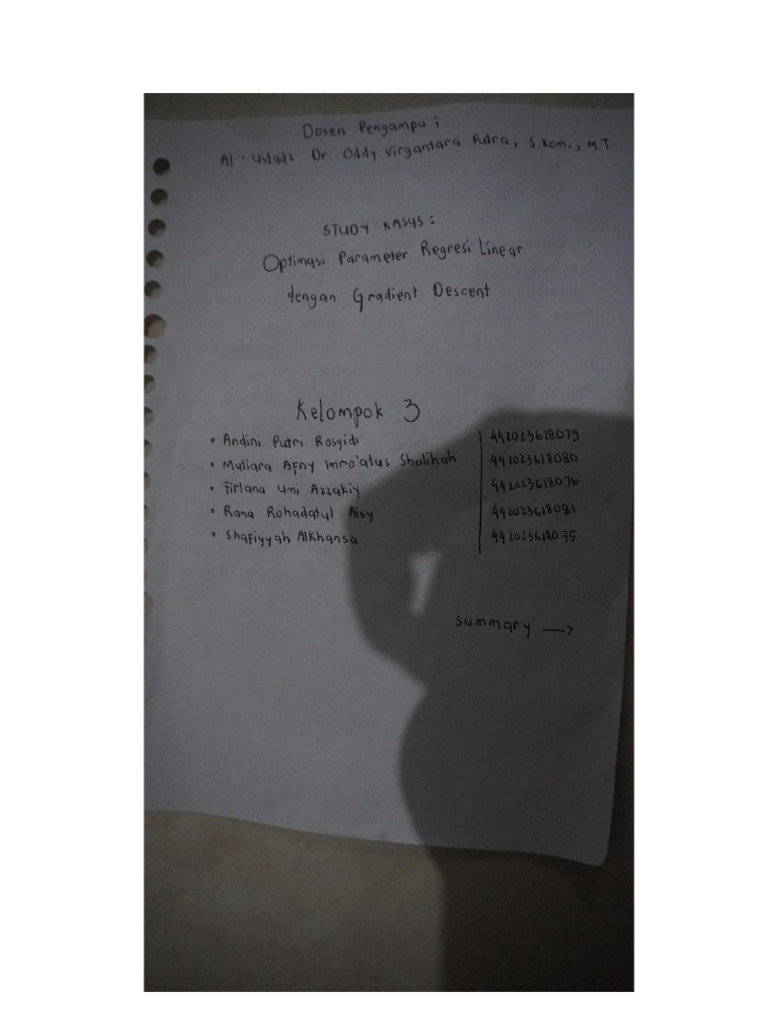 Dosen Pengampu :
Al-Ustadz Dr. Oddy Virgantara Putra, S.Kom., M.T.
STUDY KASUS :
Optimasi Parameter Regresi Linear
dengan Gradient Descent
Kelompok 3
• Andini Putri Rosyidi 442023618079
• Mutiara Afny Imro'atus Sholihah 442023618080
• Firlana Umi Azzakiy 442023618076
• Rana Rohadatul Aisy 442023618081
• Shafiyyah Alkhansa 442023618075
summary →